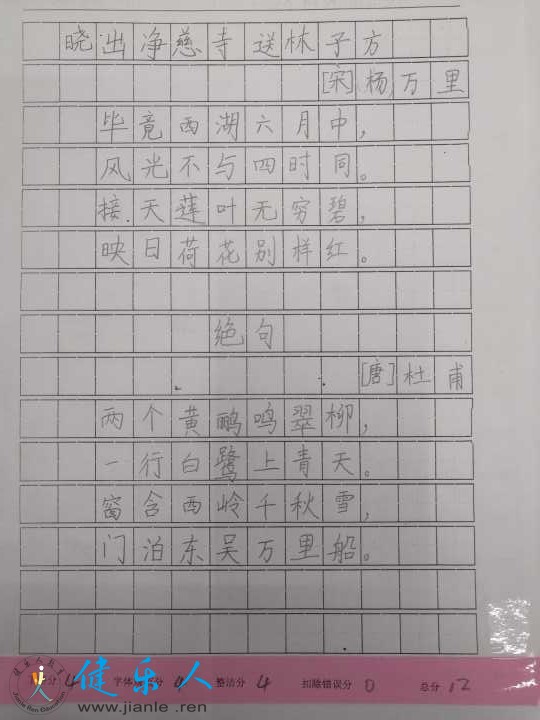 晓出净慈寺送林子方
[宋]杨万里
毕竟西湖六月中，
风光不与四时同。
接天莲叶无穷碧，
映日荷花别样红。
绝句
[唐]杜甫
两个黄鹂鸣翠柳，
一行白鹭上青天。
窗含西岭千秋雪，
门泊东吴万里船。
分 4 字体 分 4 整洁分 4 扣除错误分 0 总分 12
健乐人
www.jianle .ren